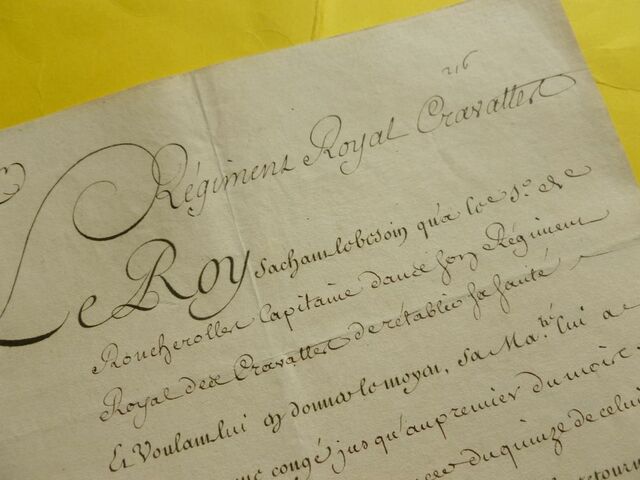 216
Régiment Royal Cravattes
Le Roy sachant le besoin qu'a le Sr. de
Roncherolles Capitaine dans son Régiment
Royal des Cravattes de rétablir sa santé
Et Voulant lui en donner le moyen, sa Ma.té lui a
congé jusqu'au premier du mois
du quinze de celui